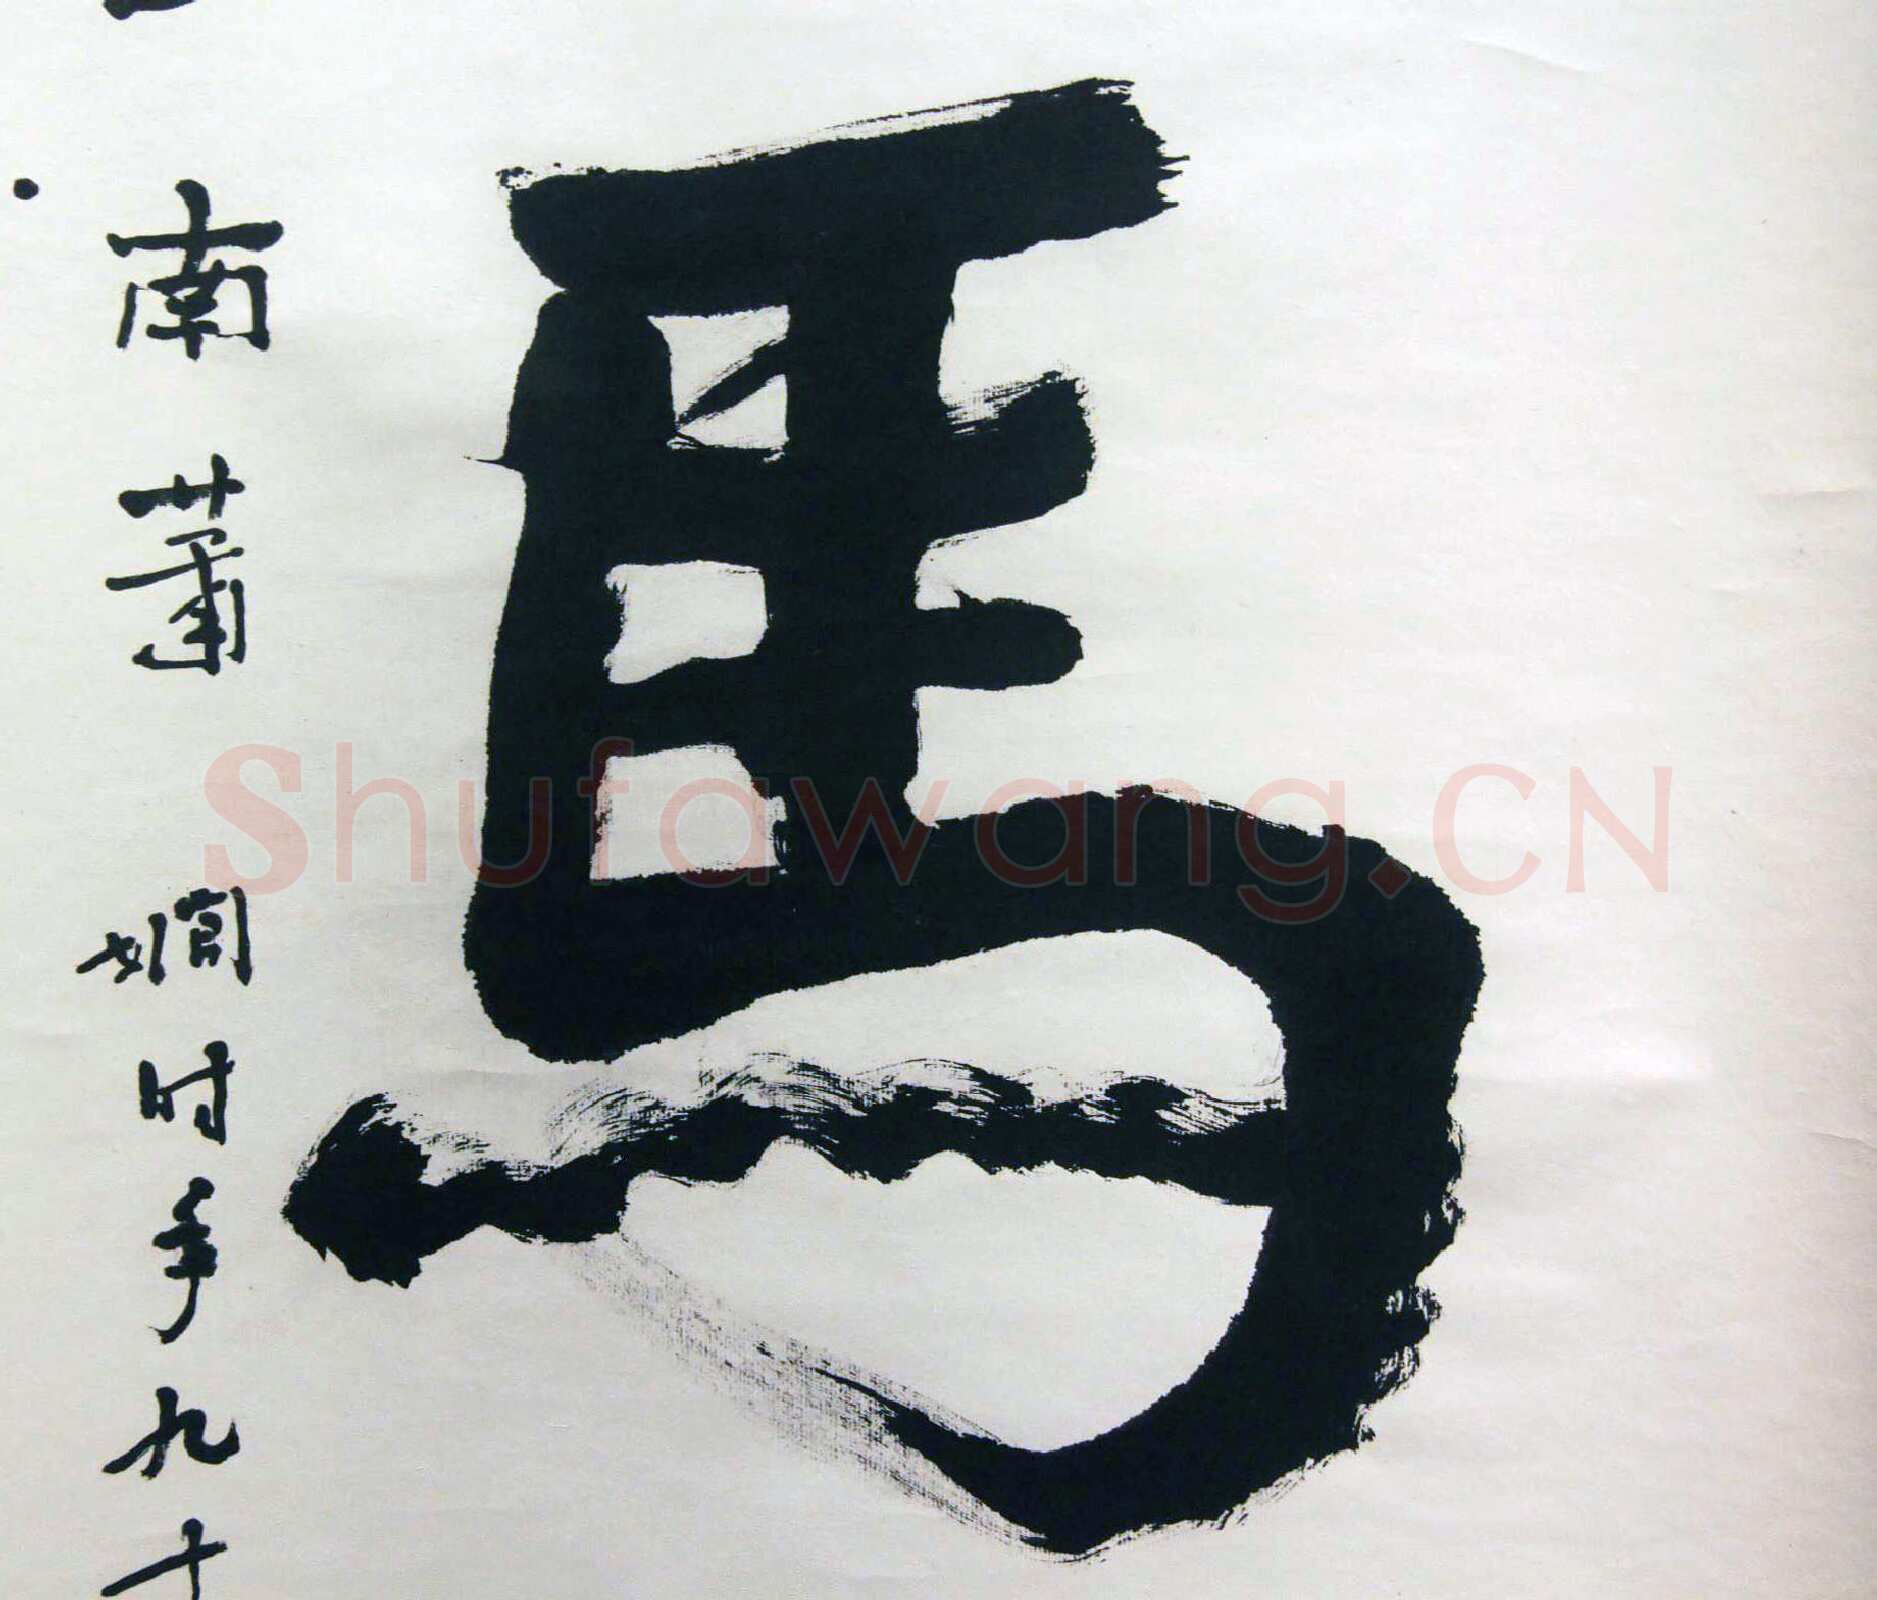 馬
南蕭嫻时年九十
Shufawang.CN